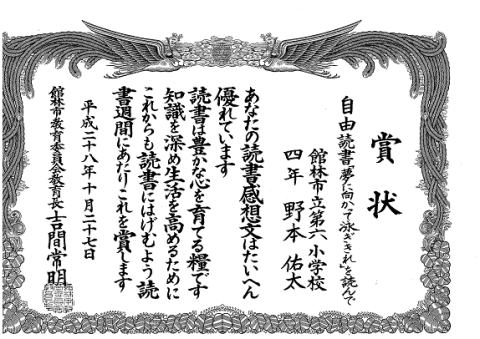 賞状
自由読書 夢に向かって泳ぎきれを読んで
館林市立第六小学校
四年 野本佑太
あなたの読書感想文はたいへん
優れています
読書は豊かな心を育てる糧です
知識を深め生活を高めるために
これからも読書にはげむよう読
書週間にあたりこれを賞します
平成二十八年十月二十七日
館林市教育委員会教育長 吉間常明